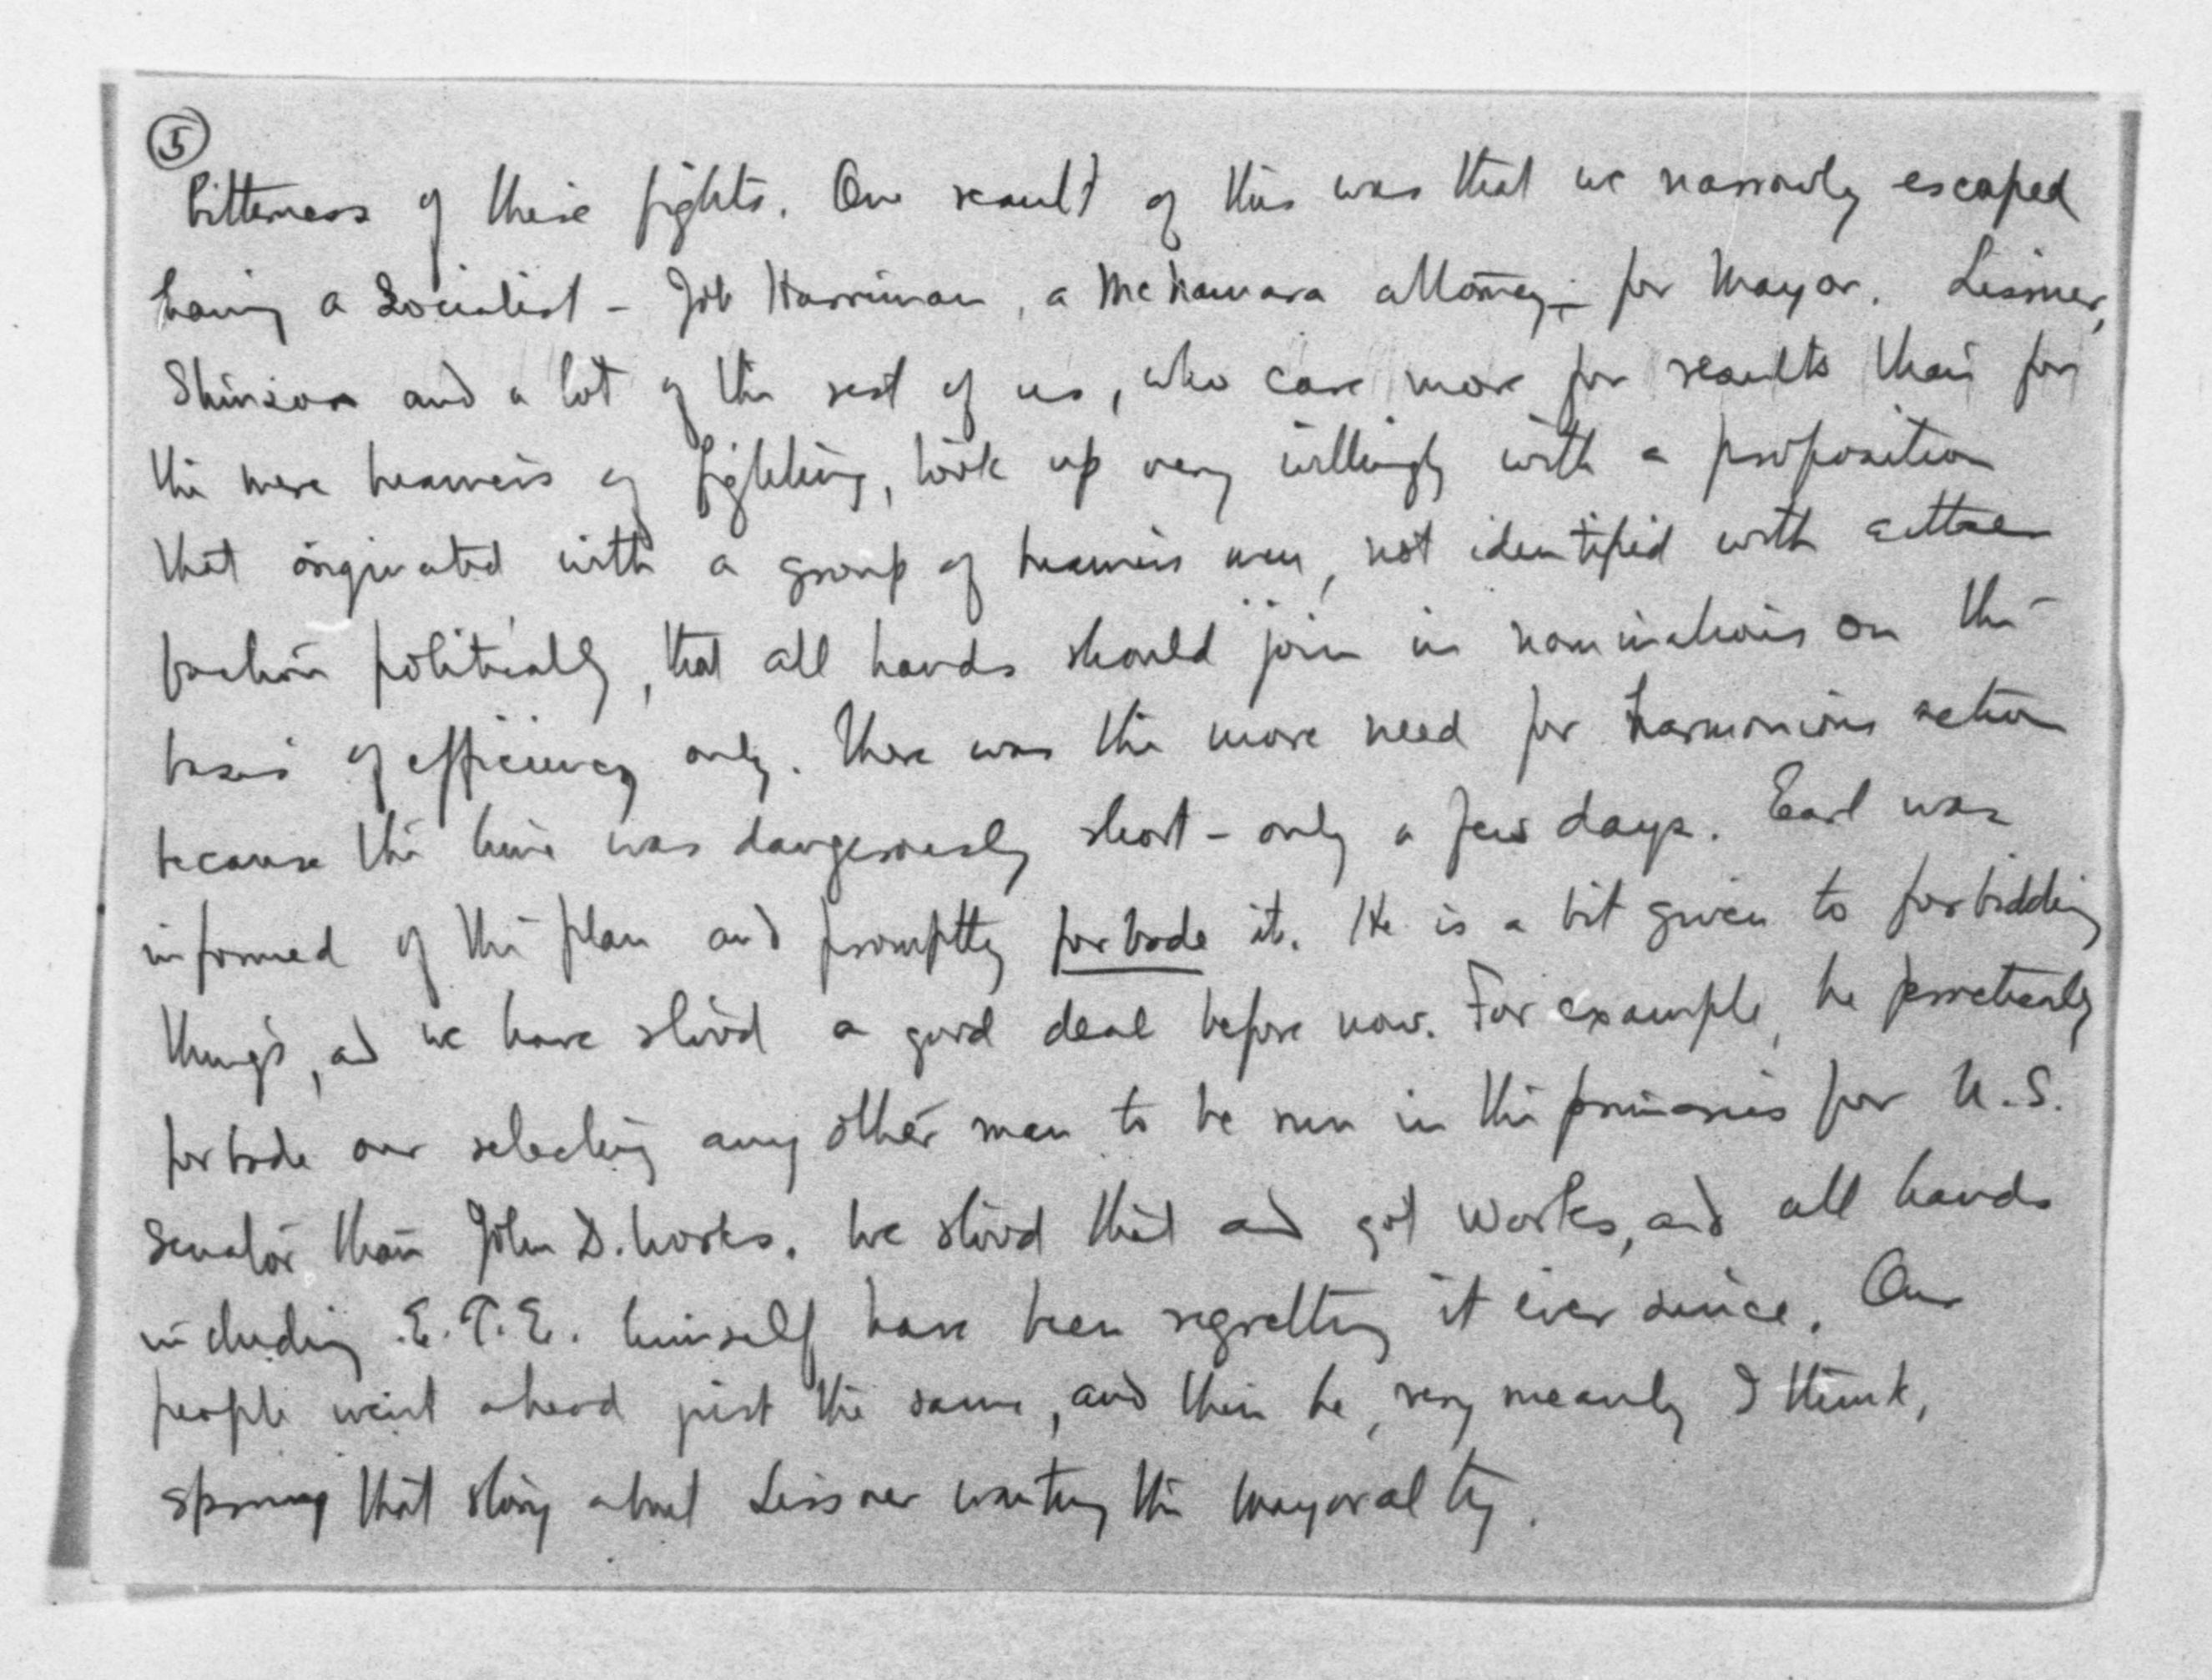 ⑤
bitterness of these fights. One result of this was that we narrowly escaped
having a Socialist - Job Harriman, a McNamara attorney - for Mayor. Lissner,
Stimson and a lot of the rest of us, who care more for results than for
the mere business of fighting, took up very willingly with a proposition
that originated with a group of business men, not identified with either
faction politically, that all hands should join in nominations on the
basis of efficiency only. There was the more need for harmonious action
because the time was dangerously short - only a few days. Earl was
informed of the plan and promptly forbade it. He is a bit given to forbidding
things, and we have stood a good deal before now. For example, he practically
forbade our selecting any other man to be run in the primaries for U.S.
Senator than John D. Works. We stood that and got Works, and all hands
including E.T.E. himself have been regretting it ever since. Our
people went ahead just the same, and then he, very meanly I think,
sprung that story about Lissner wanting the mayoralty.